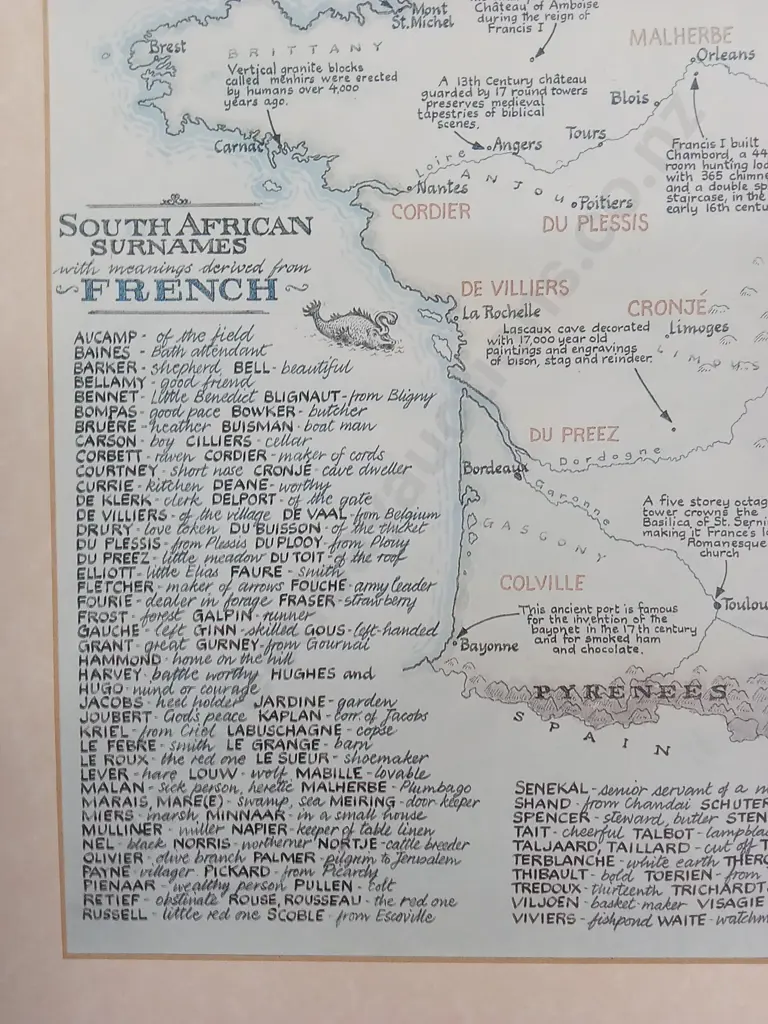 Mont
St. Michel
Château of Amboise
during the reign of
Francis I
MALHERBE
Orleans
Brest
BRITTANY
Vertical granite blocks
called menhirs were erected
by humans over 4,000
years ago.
A 13th Century château
guarded by 17 round towers
preserves medieval
tapestries of biblical
scenes.
Blois
Tours
Carnac
Angers
Loire
ANJOU
Nantes
Poitiers
Francis I built
Chambord, a 44
room hunting lod
with 365 chimne
and a double sp
staircase, in the
early 16th centu
CORDIER
DU PLESSIS
SOUTH AFRICAN
SURNAMES
with meanings derived from
FRENCH
DE VILLIERS
La Rochelle
CRONJÉ
Limoges
Lascaux cave decorated
with 17,000 year old
paintings and engravings
of bison, stag and reindeer.
DU PREEZ
Dordogne
Bordeaux
Garonne
GASCONY
A five storey octag
tower crowns the
Basilica of St. Serni
making it France's l
Romanesque
church
COLVILLE
Toulou
This ancient port is famous
for the invention of the
bayonet in the 17th century
and for smoked ham
and chocolate.
Bayonne
PYRENEES
SPAIN
AUCAMP - of the field
BAINES - Bath attendant
BARKER - shepherd, BELL - beautiful
BELLAMY - good friend
BENNET - Little Benedict BLIGNAUT - from Bligny
BOMPAS - good pace BOWKER - butcher
BRUÈRE - heather BUISMAN - boat man
CARSON - boy CILLIERS - cellar
CORBETT - raven CORDIER - maker of cords
COURTNEY - short nose CRONJÉ - cave dweller
CURRIE - kitchen DEANE - worthy
DE KLERK - clerk DELPORT - of the gate
DE VILLIERS - of the village DE VAAL - from Belgium
DRURY - love token DU BUISSON - of the thicket
DU PLESSIS - from Plessis DU PLOOY - from Plouy
DU PREEZ - little meadow DU TOIT - of the roof
ELLIOTT - little Elias FAURE - smith
FLETCHER - maker of arrows FOUCHE - army leader
FOURIE - dealer in forage FRASER - strawberry
FROST - forest GALPIN - runner
GAUCHE - left GINN - skilled GOUS - left-handed
GRANT - great GURNEY - from Gournai
HAMMOND - home on the hill
HARVEY - battle worthy HUGHES and
HUGO - mind or courage
JACOBS - heel holder JARDINE - garden
JOUBERT - God's peace KAPLAN - corr. of Jacobs
KRIEL - from Criel LABUSCHAGNE - copse
LE FEBRE - smith LE GRANGE - barn
LE ROUX - the red one LE SUEUR - shoemaker
LEVER - hare LOUW - wolf MABILLE - lovable
MALAN - sick person, heretic MALHERBE - Plumbago
MARAIS, MARE(E) - swamp, sea MEIRING - door keeper
MIERS - marsh MINNAAR - in a small house
MULLINER - miller NAPIER - keeper of table linen
NEL - black NORRIS - northerner NORTJE - cattle breeder
OLIVIER - olive branch PALMER - pilgrim to Jerusalem
PAYNE - villager PICKARD - from Picardy
PIENAAR - wealthy person PULLEN - colt
RETIEF - obstinate ROUSE, ROUSSEAU - the red one
RUSSELL - little red one SCOBLE - from Escoville
SENEKAL - senior servant of a n
SHAND - from Chandai SCHUTER
SPENCER - steward, butler STEN
TAIT - cheerful TALBOT - lampbla
TALJAARD, TAILLARD - cut off T
TERBLANCHE - white earth THERO
THIBAULT - bold TOERIEN - from
TREDOUX - thirteenth TRICHARDT
VILJOEN - basket maker VISAGIE
VIVIERS - fishpond WAITE - watchm